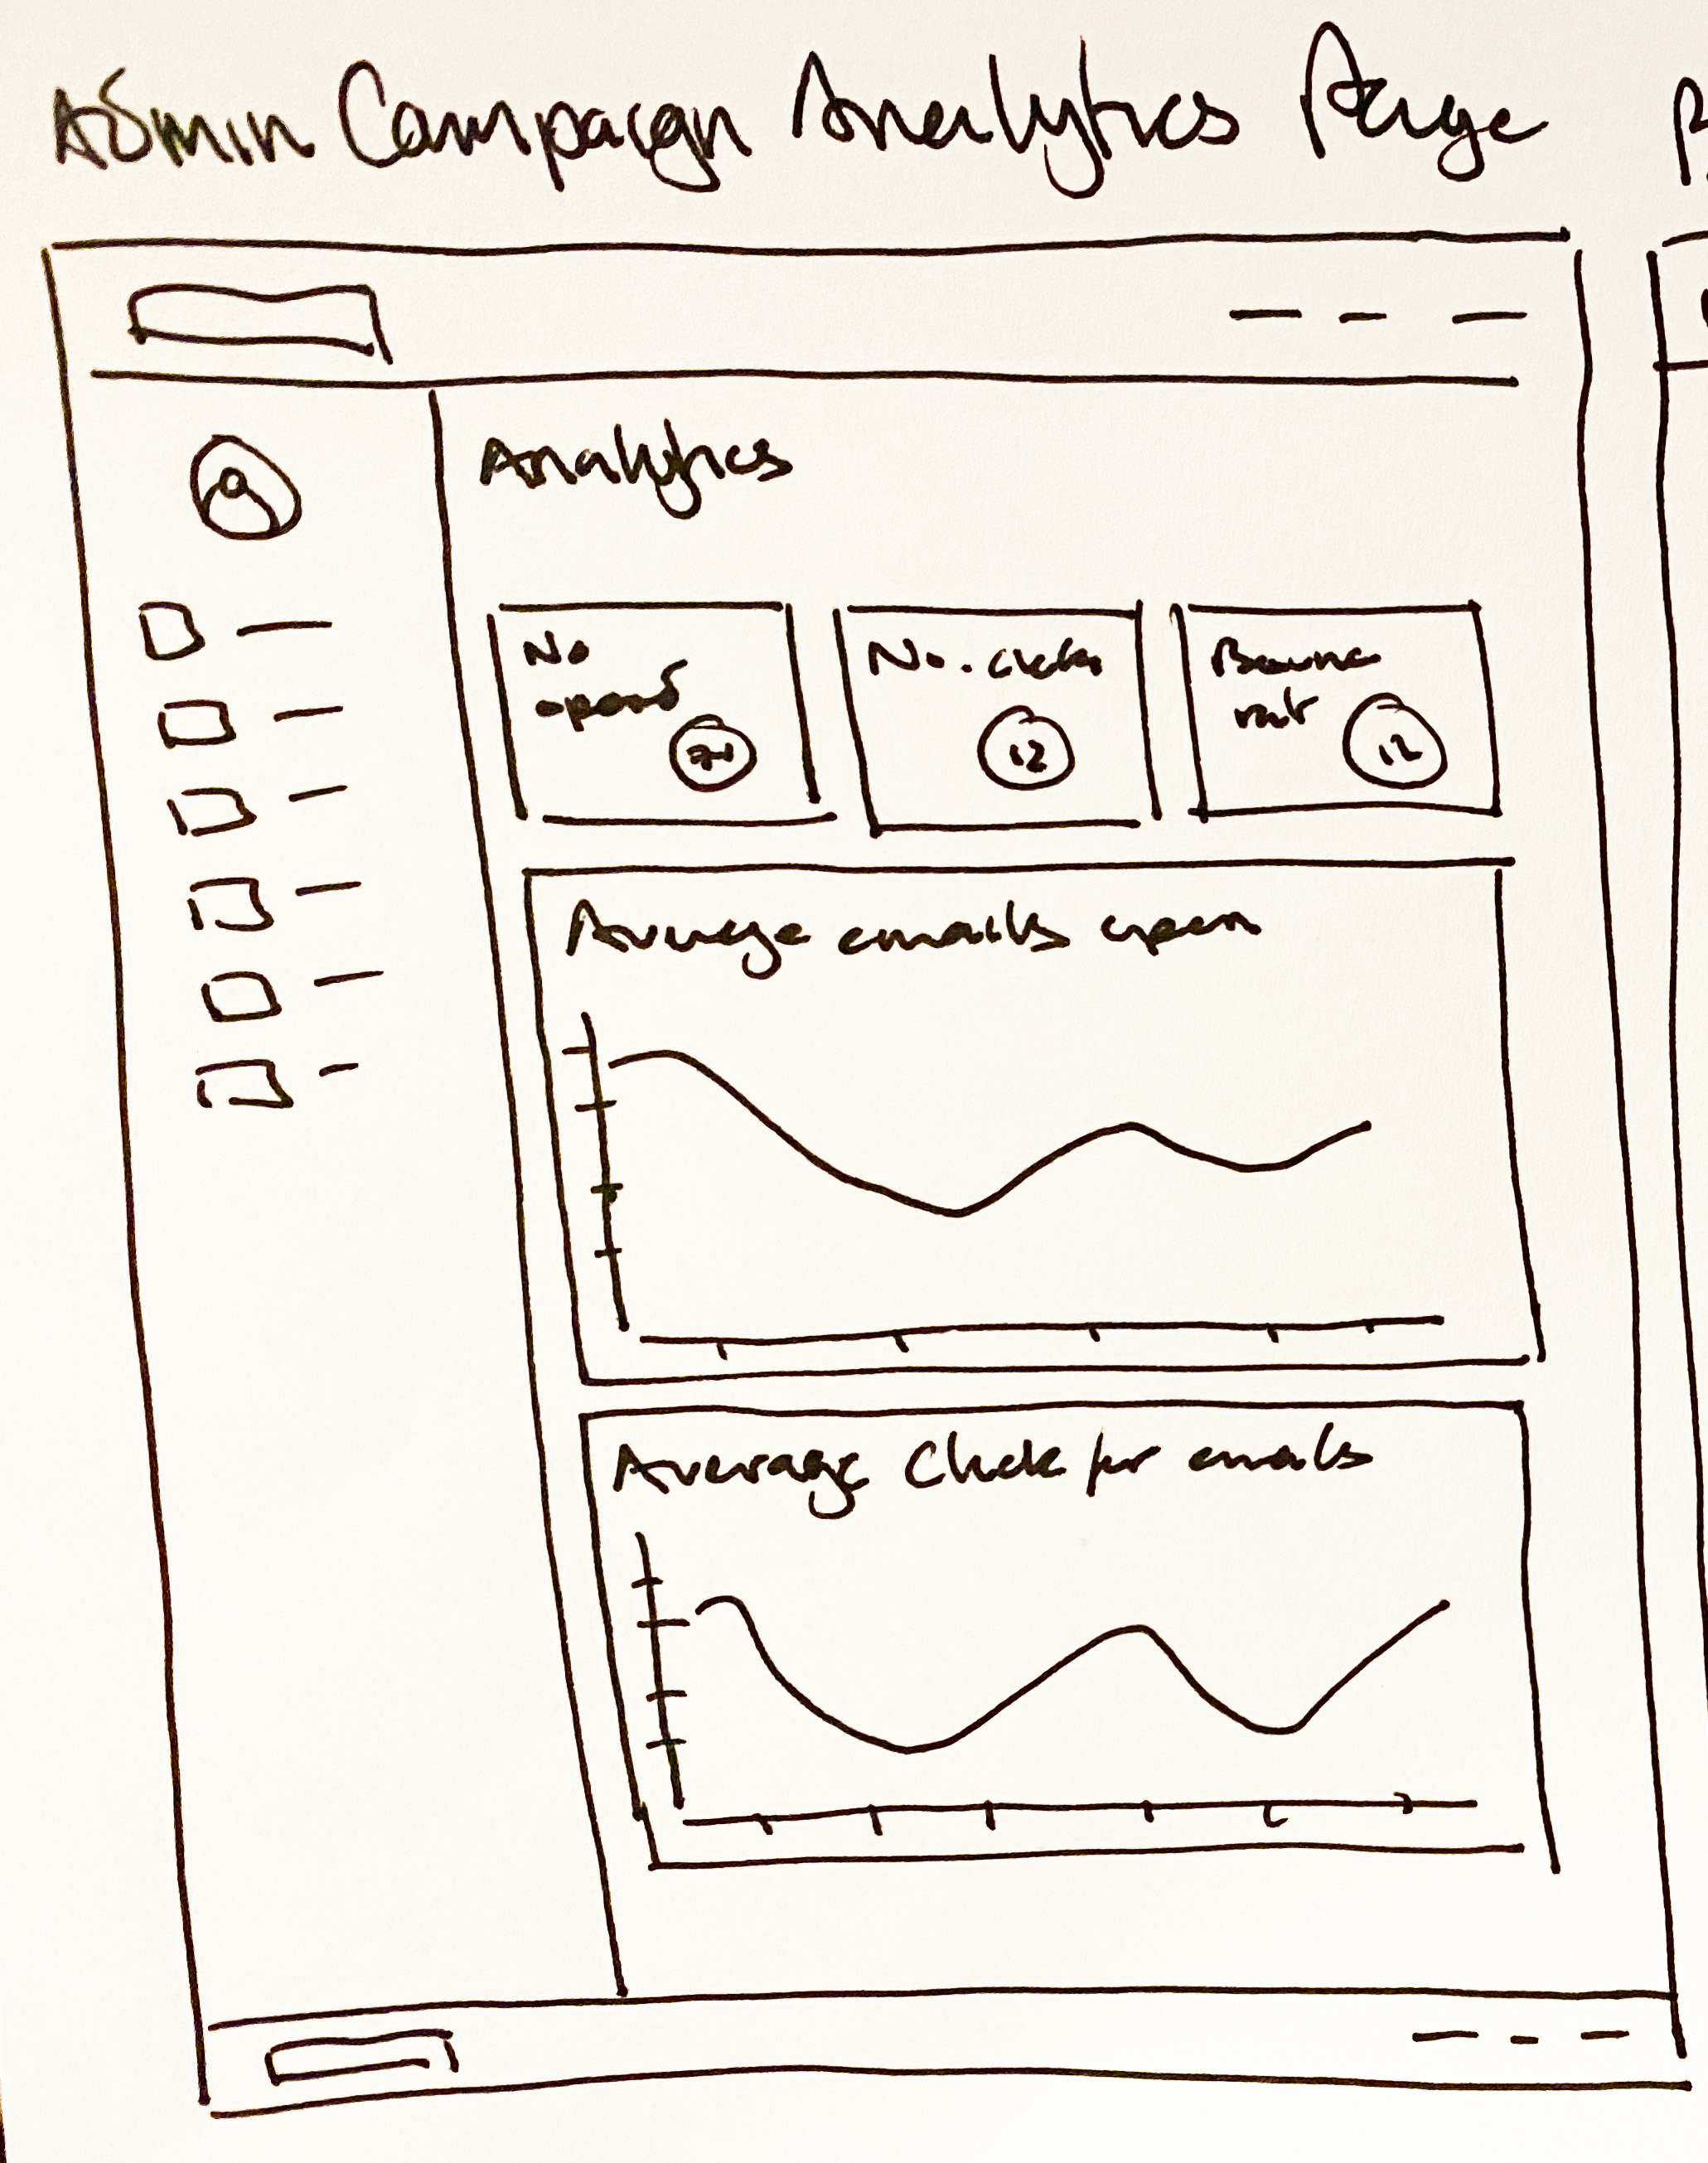 Admin Campaign Analytics Page
Analytics
No
opened
No. clicks
12
Bounce
rate
12
Average emails open
Average Click per emails